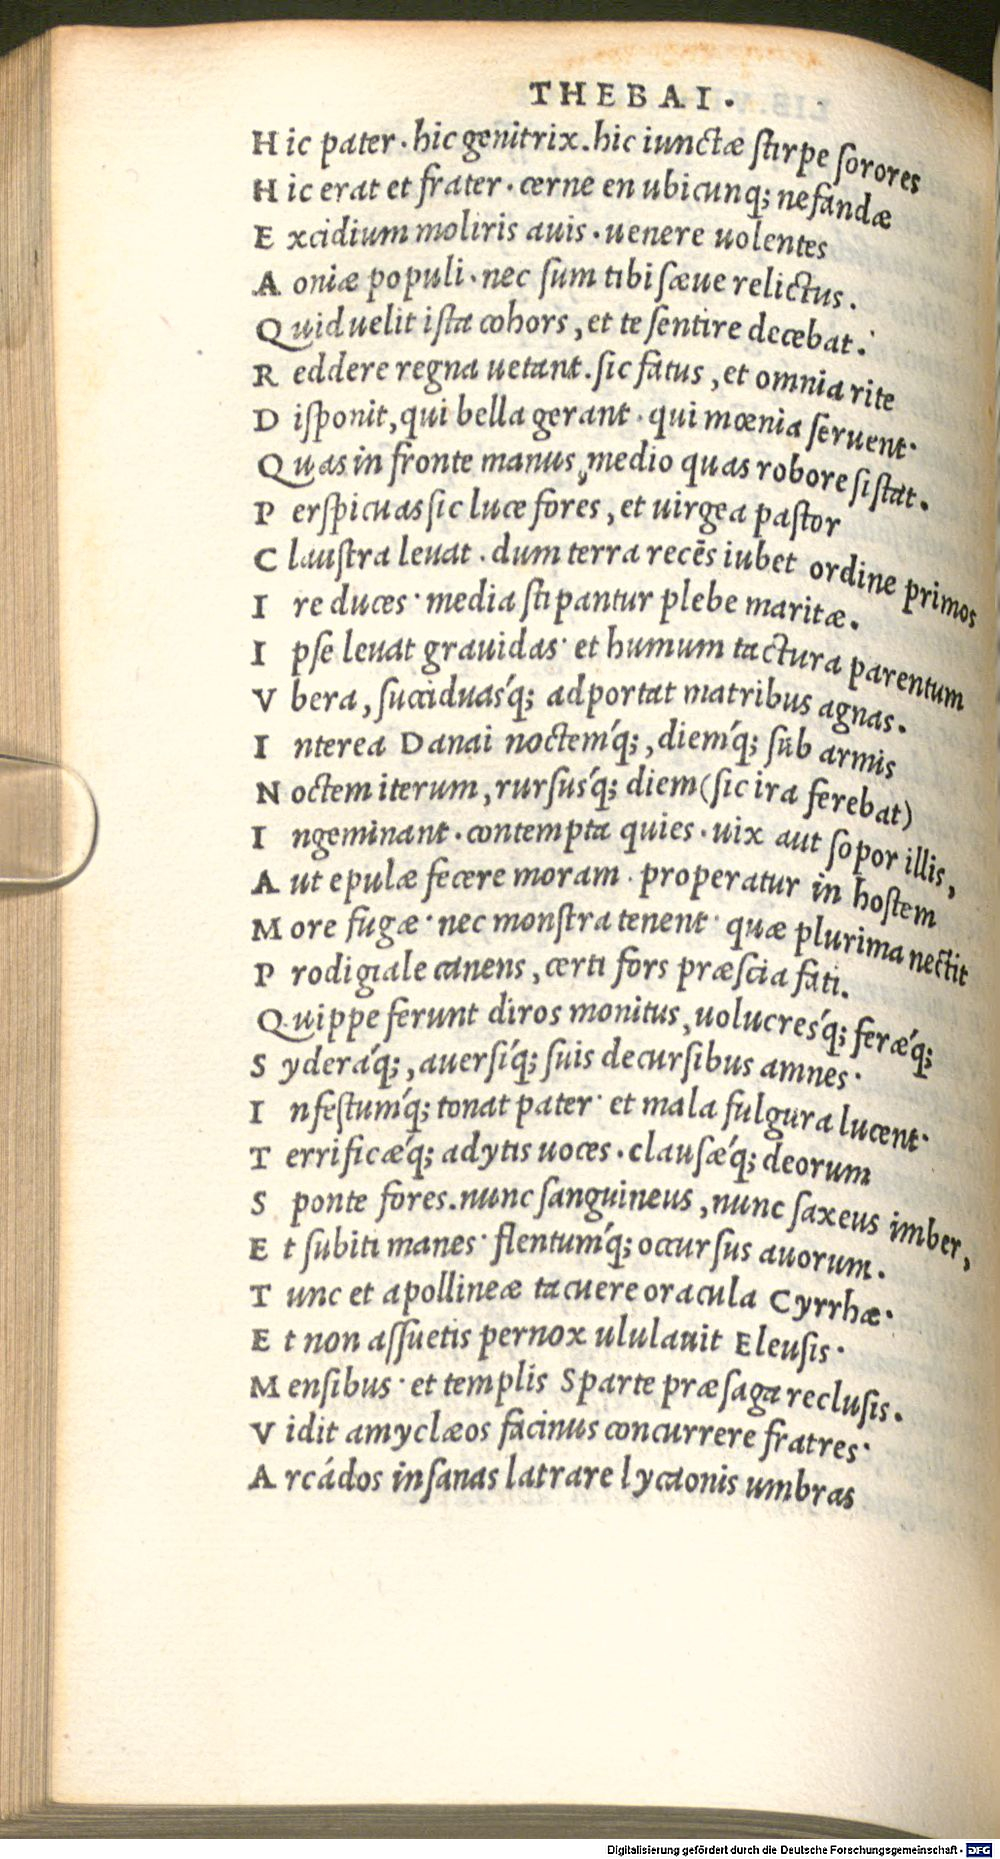 THEBAI.
Hic pater · hic genitrix. hic iunctæ stirpe sorores
Hic erat et frater · cerne en ubicunq; nefandæ
Excidium moliris auis · uenere uolentes
Aoniæ populi · nec sum tibi sæue relictus.
Quid uelit ista cohors, et te sentire decebat.
Reddere regna uetant. sic fatus, et omnia rite
Disponit, qui bella gerant · qui mœnia seruent·
Quas in fronte manus, medio quas robore sistat.
Perspicuas sic luce fores, et uirgea pastor
Claustra leuat · dum terra recēs iubet ordine primos
Ire duces· media stipantur plebe maritæ.
Ipse leuat grauidas· et humum tactura parentum
Vbera, succiduasq́; adportat matribus agnas.
Interea Danai noctemq́;, diemq́; sub armis
Noctem iterum, rursusq́; diem (sic ira ferebat)
Ingeminant · contempta quies · uix aut sopor illis,
Aut epulæ fecere moram · properatur in hostem
More fugæ· nec monstra tenent· quæ plurima nectit
Prodigiale canens, certi fors præscia fati.
Quippe ferunt diros monitus, uolucresq́; feræq́;
Syderaq́;, auersiq́; suis decursibus amnes·
Infestumq́; tonat pater· et mala fulgura lucent·
Terrificæq́; adytis uoces · clausæq́; deorum
Sponte fores. nunc sanguineus, nunc saxeus imber,
Et subiti manes· flentumq́; occursus auorum.
Tunc et apollineæ tacuere oracula Cyrrhæ·
Et non assuetis pernox ululauit Eleusis·
Mensibus· et templis Sparte præsaga reclusis.
Vidit amyclæos facinus concurrere fratres·
Arcádos insanas latrare lycaonis umbras
Digitalisierung gefördert durch die Deutsche Forschungsgemeinschaft - DFG